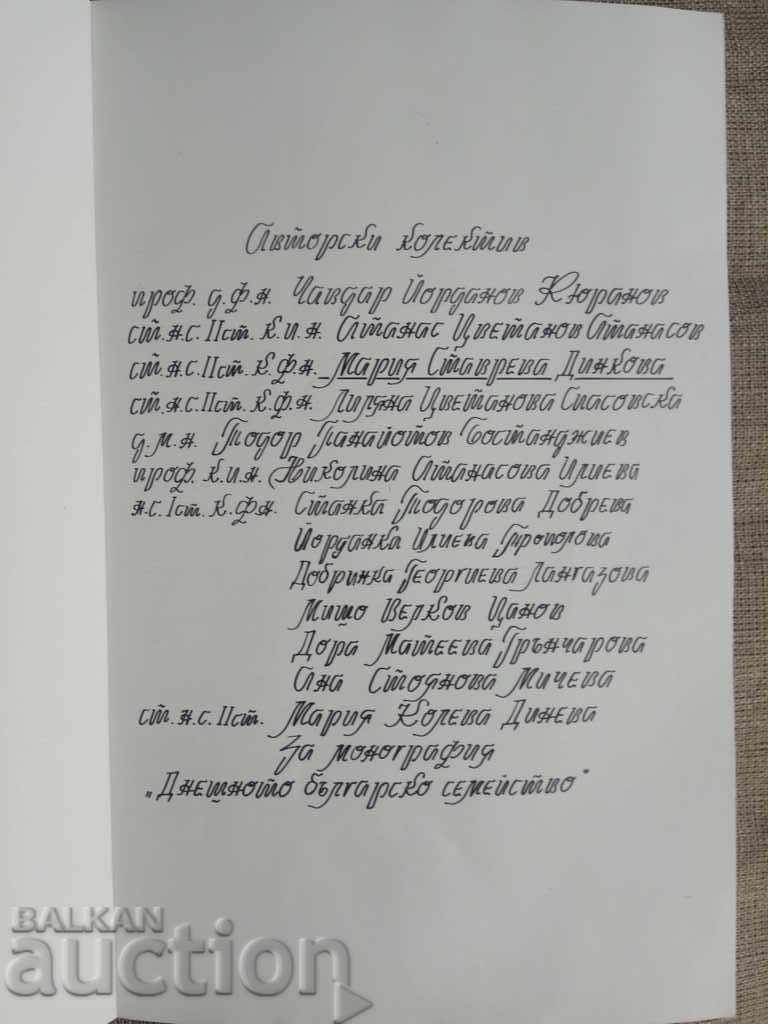 Авторски колектив
проф. д.ф.н. Чавдар Йорданов Кюранов
ст.н.с. IIст. к.и.н. Атанас Цветанов Атанасов
ст.н.с. IIст. к.ф.н. Мария Ставрева Динкова
ст.н.с. IIст. к.ф.н. Лиляна Цветанова Спасовска
д.м.н. Тодор Панайотов Бостанджиев
проф. к.и.н. Николина Атанасова Илиева
н.с. Iст. к.ф.н. Станка Тодорова Добрева
Йорданка Илиева Трополова
Добринка Георгиева Лангазова
Мишо Велков Цанов
Дора Матеева Грънчарова
Ана Стоянова Мичева
ст.н.с. IIст. Мария Колева Динева
За монография
„Днешното българско семейство"
BALKAN
auction